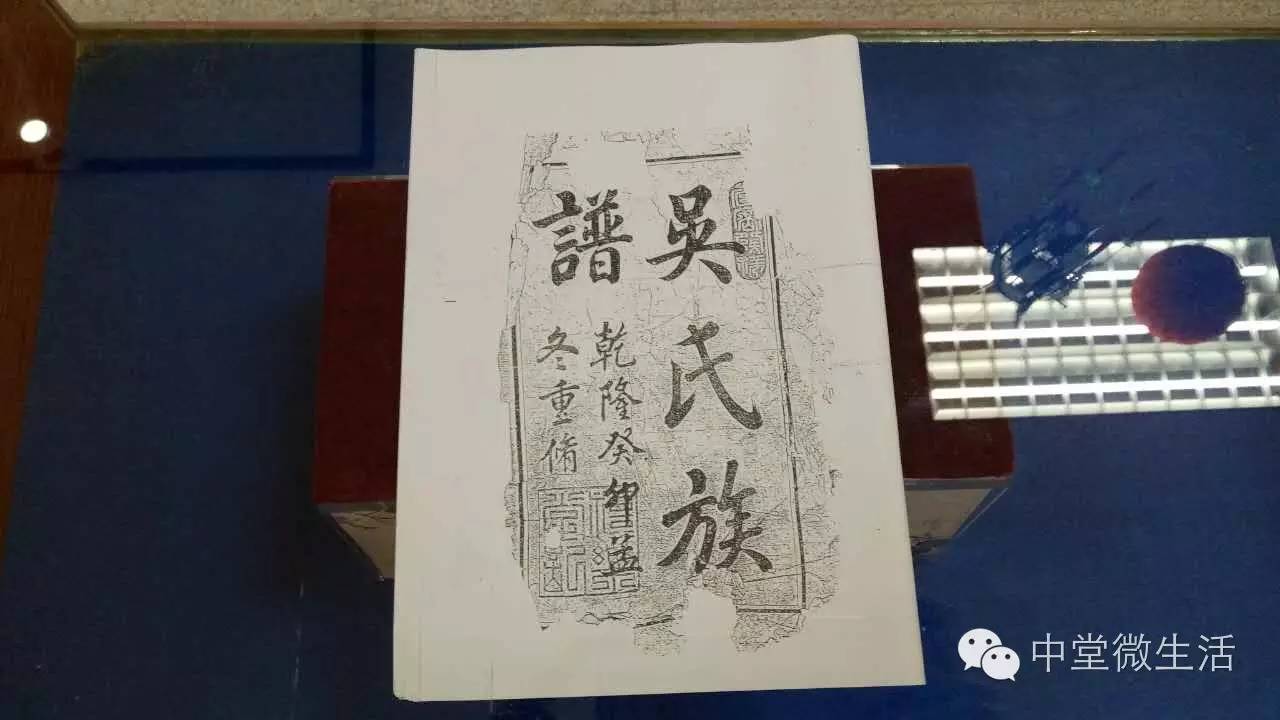 吳氏族
譜
乾隆癸卯孟
冬重脩
中堂微生活